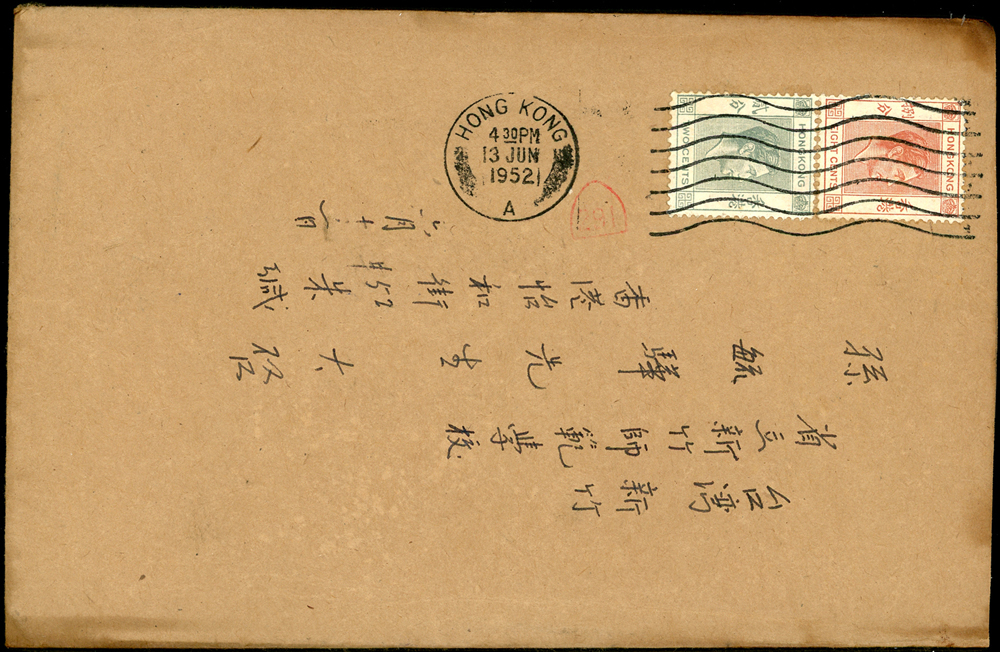 HONG KONG
4 30PM
13 JUN
1952
A
香港
貳分
HONGKONG
TWO CENTS
香港
捌分
HONGKONG
EIGHT CENTS
台灣新竹
省立新竹師範學校
孫毓驊先生 大啟
香港怡和街 吳緘
六月十 日